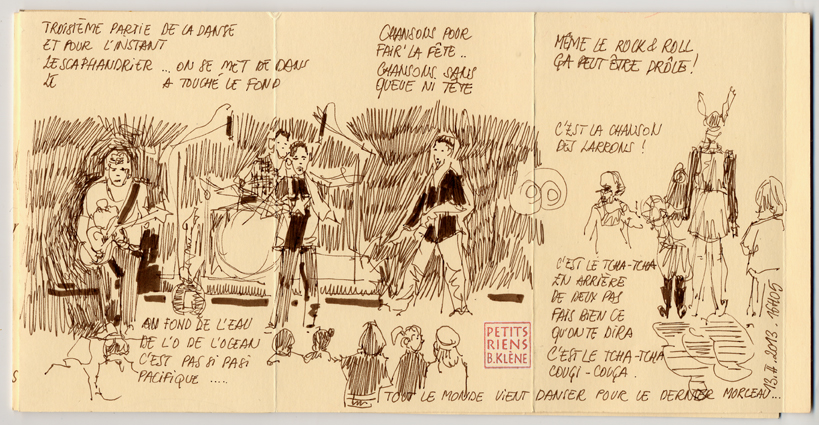 TROISTÈME PARTIE DE LA DANSE
ET POUR L'INSTANT
LE SCAPHANDRIER ... ON SE MET DE DANS
LE A TOUCHÉ LE FOND
CHANSONS POUR
FAIR' LA FÊTE ..
CHANSONS SANS
QUEUE NI TÊTE
MÊME LE ROCK & ROLL
ÇA PEUT ÊTRE DRÔLE !
C'EST LA CHANSON
DES LARRONS !
C'EST LE TCHA-TCHA
EN ARRIÈRE
DE DEUX PAS
FAIS BIEN CE
QU'ON TE DIRA
C'EST LE TCHA-TCHA
COUÇI-COUÇA.
AU FOND DE L'EAU
DE L'O DE L'OCEAN
C'EST PAS SI PASI
PACIFIQUE .....
PETITS
RIENS
B.KLÈNE
TOUT LE MONDE VIENT DANSER POUR LE DERNIER MORCEAU...
13.II.2013. 16H05